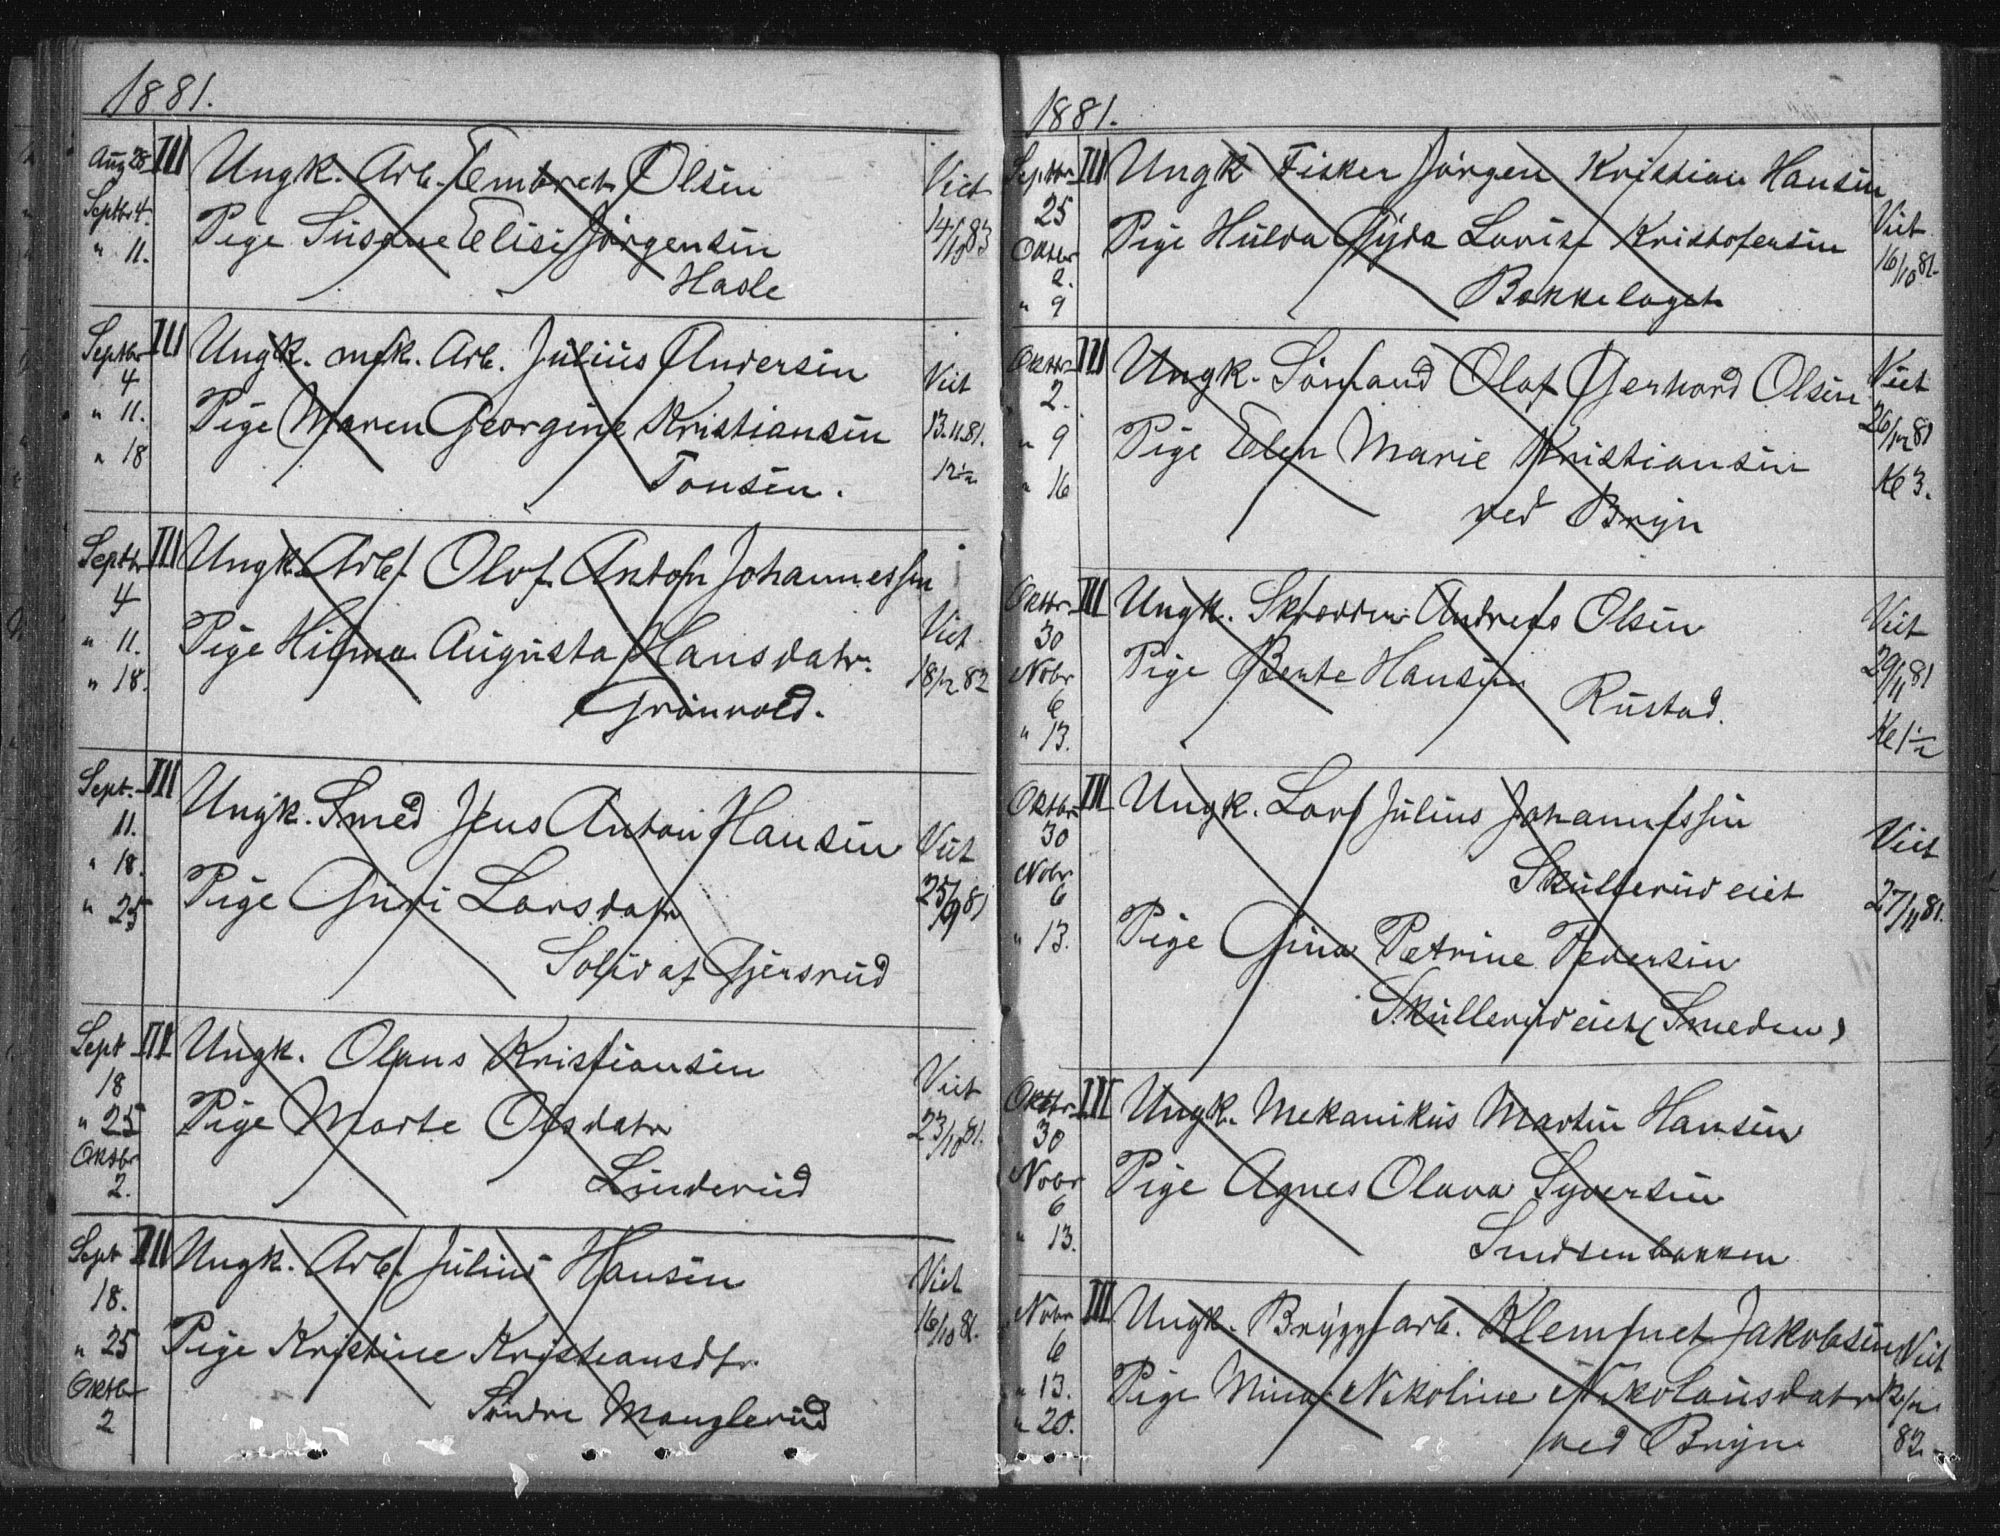 1881.
Aug 28 III Ungk. Arb. Embret Olsen Viet
Septbr 4. Pige Susane Elise Jørgensen 14/10 83
" 11. Hasle
Septbr III Ungk. mek. Arb. Julius Andersen Viet
4
" 11. Pige Maren Georgine Kristiansen 13.11.81.
" 18 Tonsen. 12½
Septbr III Ungk. Arb. Olof Anton Johannessen
4 Viet
" 11. Pige Hilma Augusta Hansdatr. 18/12 82
" 18. Grønvold.
Sept. III Ungk. Smed Jens Anton Hansen Viet
11.
" 18. Pige Guri Larsdatr 25/9 81
" 25 Solid af Gjersrud
Sept III Ungk. Olaus Kristiansen Viet
18
" 25 Pige Marte Olsdatr 23/10 81.
Oktbr
2. Linderud
Sept III Ungk. Arb. Julius Hansen Viet
18. 16/10 81.
" 25 Pige Kristine Kristiansdtr.
Oktbr
2 Søndre Manglerud
1881.
Septbr III Ungk Fisker Jørgen Kristian Hansen
25 Pige Hulda Gyda Lovise Kristofersen Viet
Oktbr 16/10 81.
2. Bækkelaget
" 9
Oktbr III Ungk. Sømand Olaf Gerhard Olsen Viet
2. 26/12 81
" 9 Pige Elen Marie Kristiansen Kl 3.
" 16 ved Bryn
Oktbr III Ungk. Skrædder Andreas Olsen Viet
30
Nobr Pige Bente Hansen 29/11 81
6 Rustad.
" 13. Kl 1½
Oktbr III Ungk. Lars Julius Johannessen
30 Viet
Nobr Skullerud eiet
6 27/11 81.
" 13. Pige Gina Petrine Pedersen
Skullerud eiet (Smeden)
Oktbr III Ungk. Mekanikus Martin Hansen
30
Nobr Pige Agnes Olava Syversen
6
" 13. Simensenbakken
Nobr III Ungk. Brygg arb. Klemmet Jakobsen Viet
6
" 13. Pige Mina Nikoline Nikolausdatr
" 20. ved Bryn 82